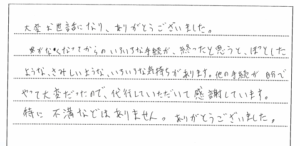 大変お世話になり、ありがとうございました。
亡くなってからのいろいろな手続が、終ったと思うと、ほっとした
ような、さみしいような、いろいろな気持ちがあります。他の手続が
やって大変だったので、代行していただいて感謝しています。
特に不満などはありません。ありがとうございました。